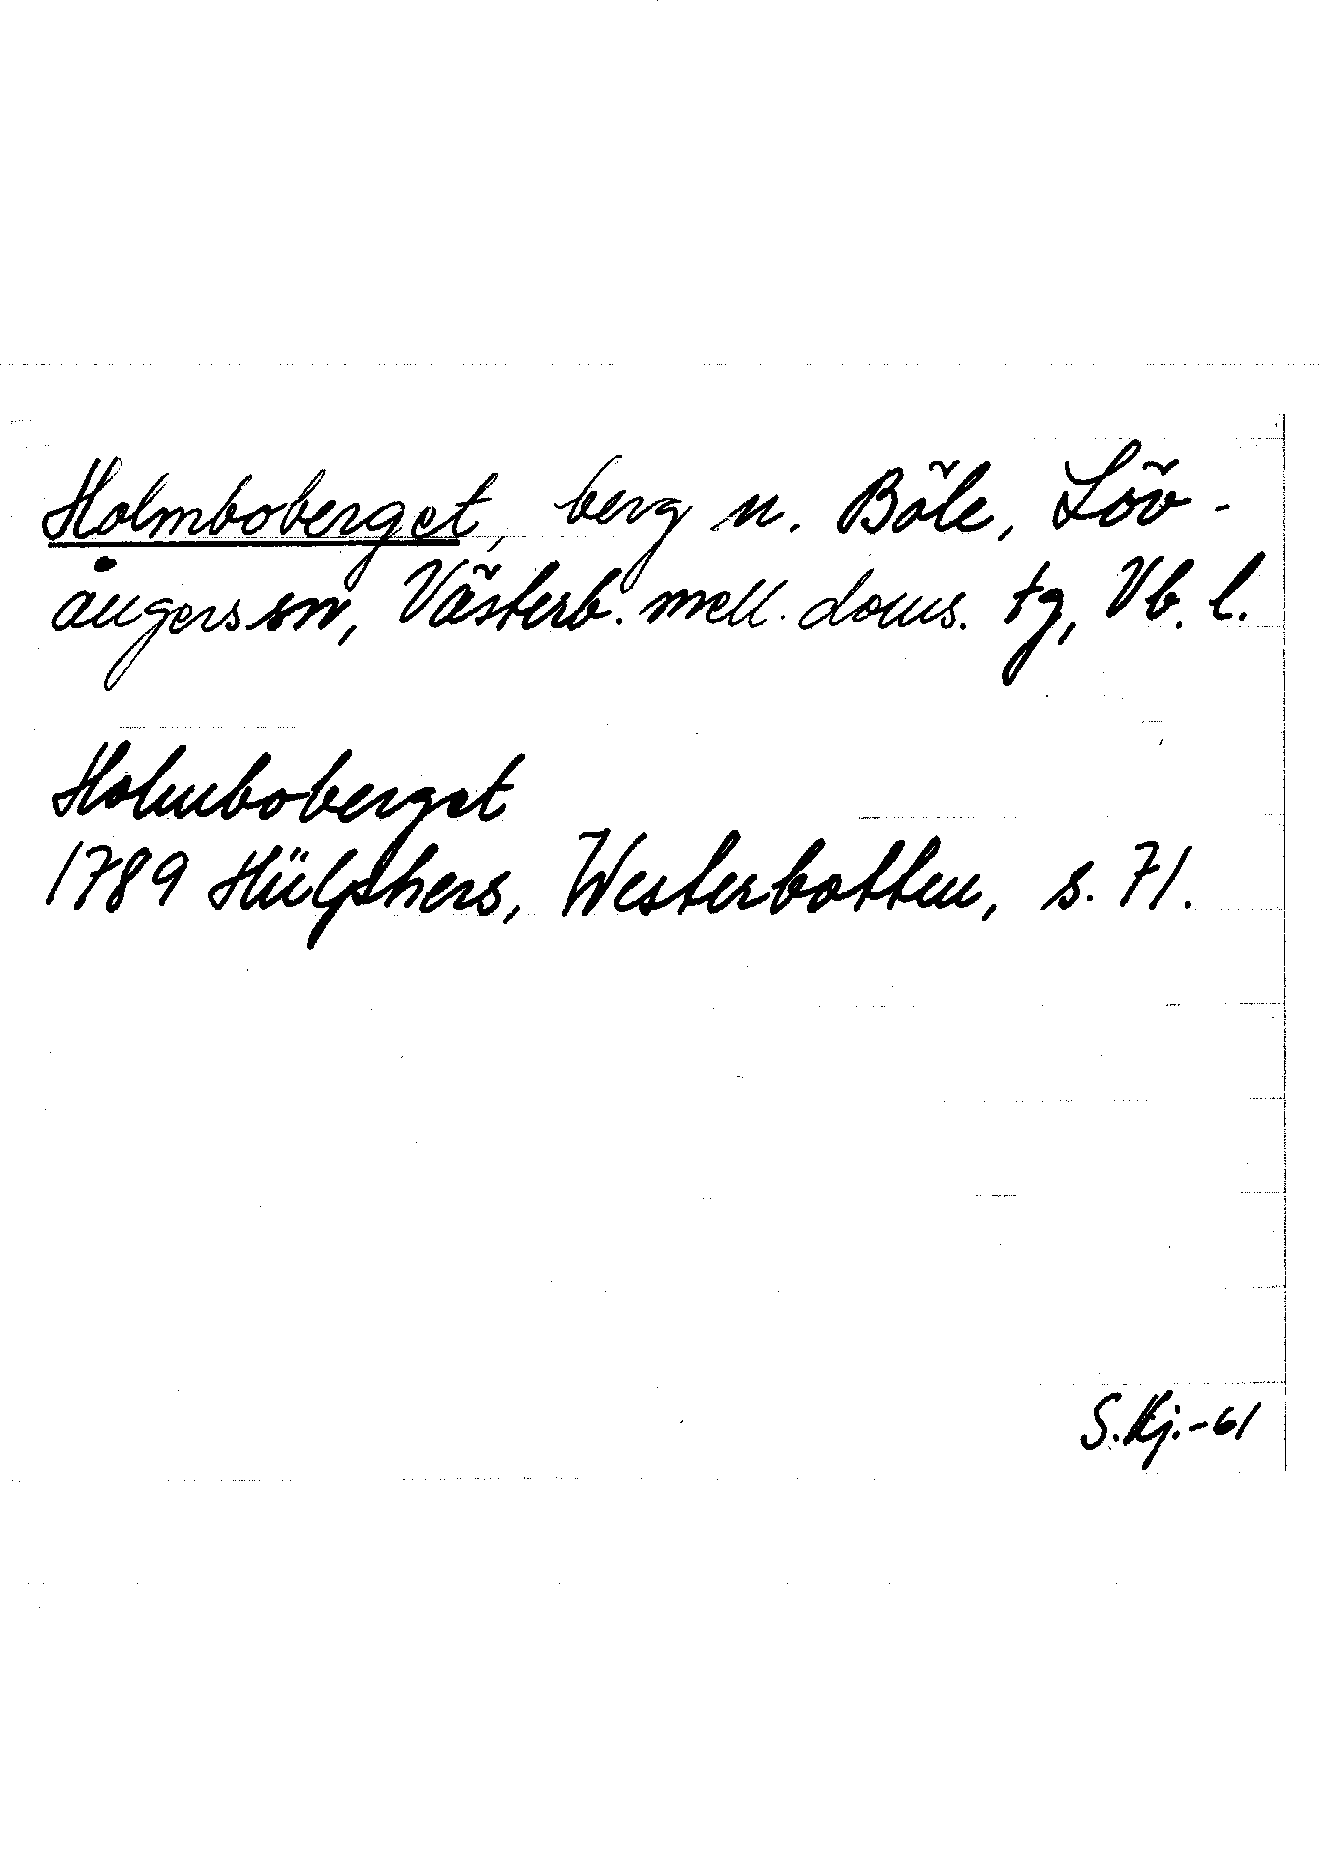 Holmboberget, berg n. Böle, Löv-
ångers sn, Västerb. mell. doms. tg, Vb. l.
Holmboberget
1789 Hülphers, Westerbotten, s. 71.
S. Kj. -61